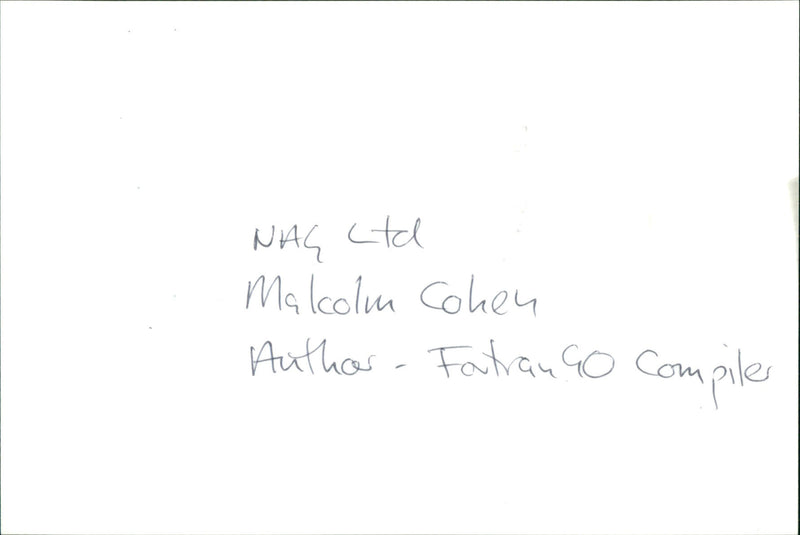 NAG Ltd
Malcolm Cohen
Author - Fortran 90 Compiler